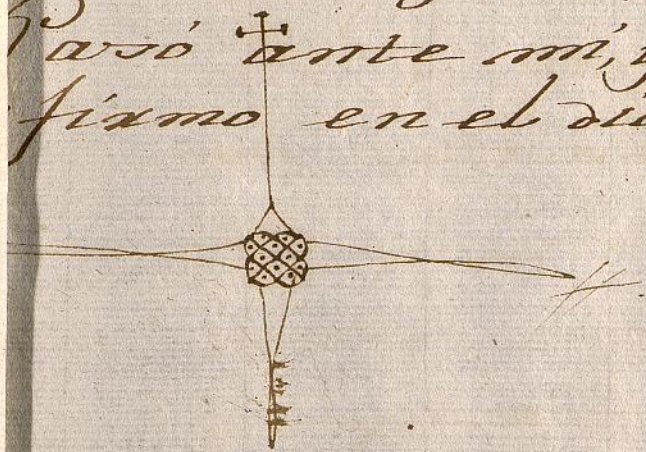 Pasó ante mí, y
firmo en el di